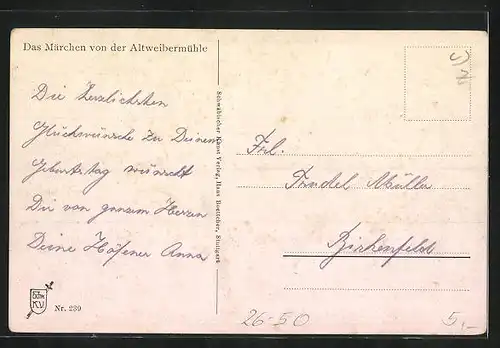 Das Märchen von der Altweibermühle
Die herzlichsten
Glückwünsche zu Deinem
Geburtstag wünscht
Dir von ganzem Herzen
Deine Höfener Anna
Schwäbischer Kunst Verlag, Hans Boettcher, Stuttgart
Frl.
Müller
Birkenfeld
KV
Nr. 239
26-50
5,-